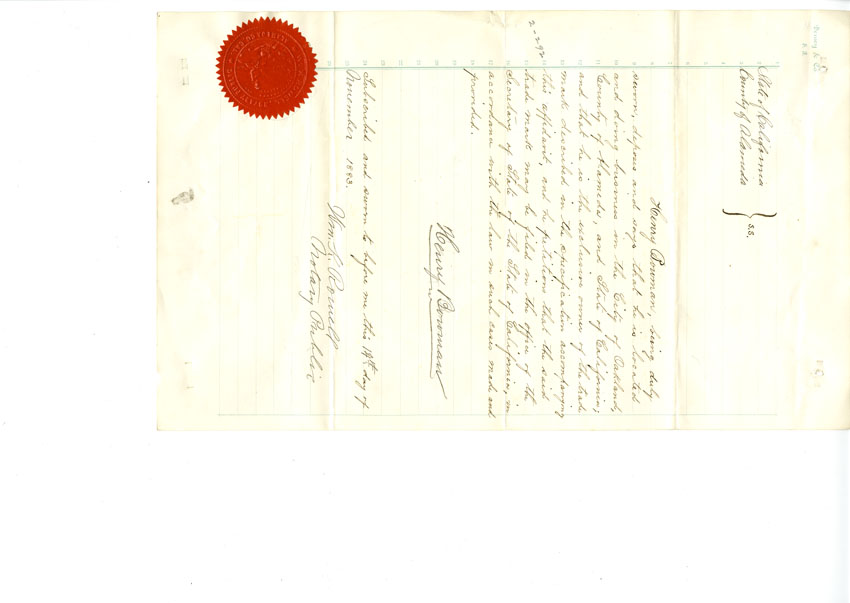 State of California
County of Alameda } S.S.
Henry Bowman, being duly
sworn, deposes and says that he is located
and doing business in the City of Oakland,
County of Alameda, and State of California;
and that he is the exclusive owner of the trade
mark described in the specification accompanying
this affidavit, and he petitions that the said
trade mark may be filed in the office of the
Secretary of State of the State of California, in
accordance with the law in such case made and
provided.
Henry Bowman
Subscribed and sworn to before me this 19th day of
November 1883.
Notary Public
2-292